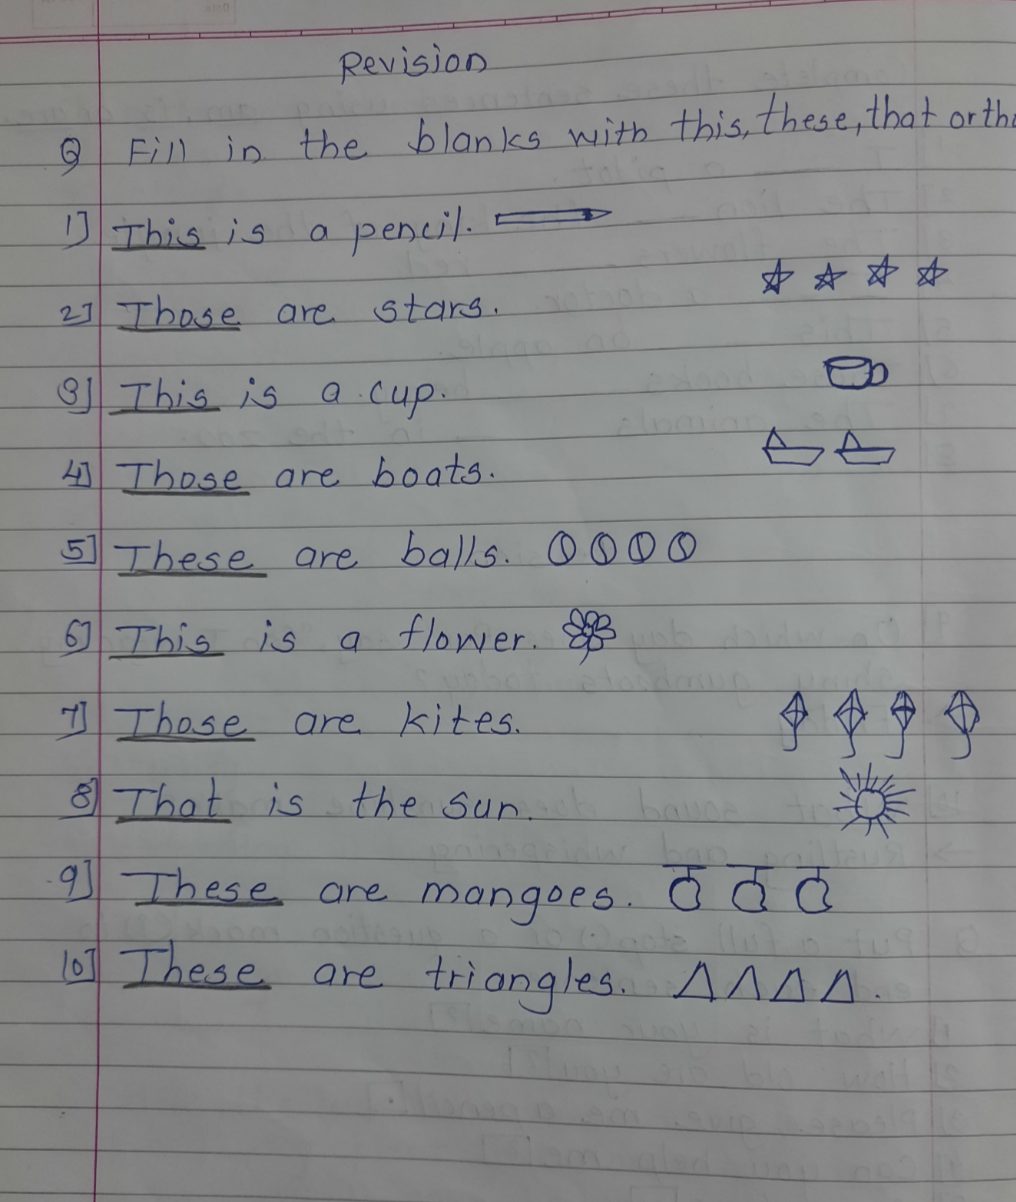 Revision
Q Fill in the blanks with this, these, that or tho
1] This is a pencil.
2] Those are stars.
3] This is a cup.
4] Those are boats.
5] These are balls.
6] This is a flower.
7] Those are kites.
8] That is the sun.
9] These are mangoes.
10] These are triangles.